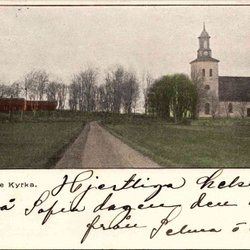 e Kyrka.
Hjertliga hels
på Sofia dagen den
från Selma ö